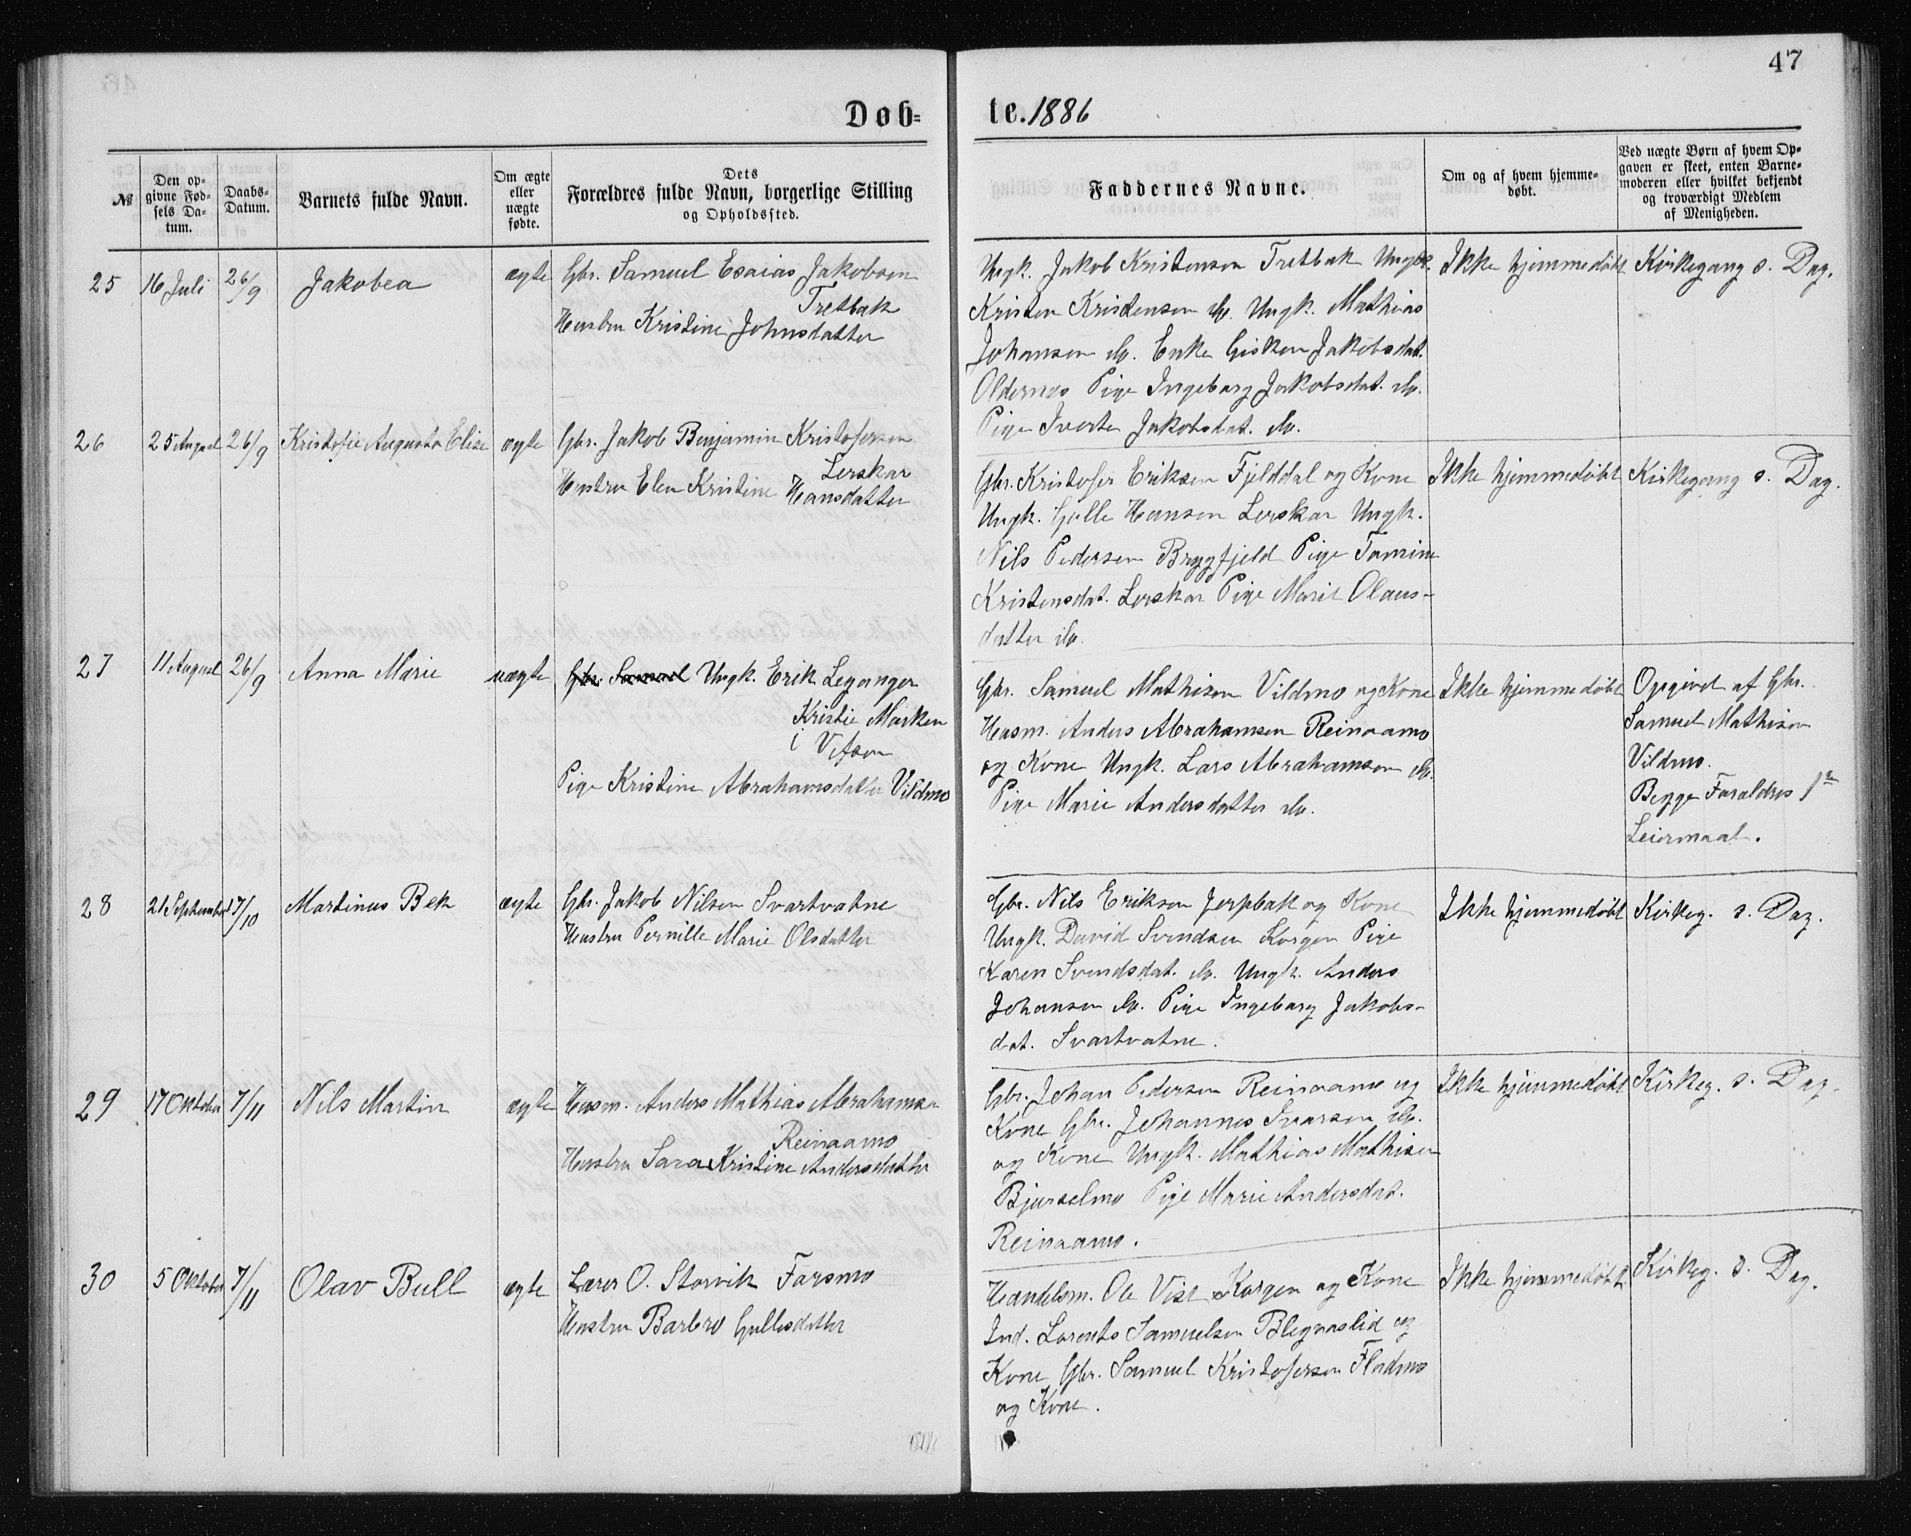 47
Døb=
te. 1886
№
Den op-
givne Fød-
sels Da-
tum.
Daabs-
Datum.
Barnets fulde Navn.
Om ægte
eller
uægte
fødte.
Dets
Forældres fulde Navn, borgerlige Stilling
og Opholdssted.
Faddernes Navne.
Om og af hvem hjemme-
døbt.
Ved uægte Børn af hvem Op-
gaven er skeet, enten Barne-
moderen eller hvilket bekjendt
og troværdigt Medlem
af Menigheden.
25
16 Juli
26/9
Jakobea
ægte
Gbr. Samuel Esaias Jakobsen
Tretbak
Hustru Kristine Johnsdatter
Ungk. Jakob Kristensen Tretbak Ungk.
Kristen Kristensen do. Ungk. Mathias
Johansen do. Enke Gisken Jakobsdat.
Oldernes Pige Ingeborg Jakobsdat. do.
Pige Iverte Jakobsdat. do.
Ikke hjemmedøbt
Kirkegang s. Dag.
26
25 August
26/9
Kristofie Augusta Elise
ægte
Gbr. Jakob Benjamin Kristofersen
Lerskar
Hustru Elen Kristine Hansdatter
Gbr. Kristofer Eriksen Fjelddal og Kone
Ungk. Gulle Hansen Lerskar Ungk.
Nils Pedersen Bryggfjeld Pige Tomine
Kristensdat. Lerskar Pige Marie Olaus-
datter do.
Ikke hjemmedøbt
Kirkegang s. Dag.
27
11 August
26/9
Anna Marie
uægte
Gbr. Samuel Ungk. Erik Leganger
Kristie Marken
i Vefsen
Pige Kristine Abrahamsdatter Vildmo
Gbr. Samuel Mathisen Vildmo og Kone
Husm. Anders Abrahamsen Reinaamo
og Kone Ungk. Lars Abrahamsen do.
Pige Marie Andersdatter do.
Ikke hjemmedøbt
Opgivet af Gbr.
Samuel Mathisen
Vildmo.
Begge Forældres 1ste
Leiermaal.
28
21 September
7/10
Martinus Bek
ægte
Gbr. Jakob Nilsen Svartvatne
Hustru Pernille Marie Olsdatter
Gbr. Nils Eriksen Jerpbak og Kone
Ungk. David Svendsen Korgen Pige
Karen Svendsdat. do. Ungk. Anders
Johansen do. Pige Ingeborg Jakobs-
dat. Svartvatne.
Ikke hjemmedøbt
Kirkeg. s. Dag.
29
17 Oktober
7/11
Nils Martin
ægte
Husm. Anders Mathias Abrahamsen
Reinaamo
Hustru Sara Kristine Andersdatter
Gbr. Johan Pedersen Reinaamo og
Kone Gbr. Johannes Ivarsen do.
og Kone Ungk. Mathias Mathisen
Bjurselmo Pige Marie Andersdat.
Reinaamo.
Ikke hjemmedøbt
Kirkeg. s. Dag.
30
5 Oktober
7/11
Olav Bull
ægte
Lærer O. Storvik Farsmo
Hustru Barbro Gullesdatter
Handelsm. Ole Vist Korgen og Kone
Ind. Lorents Samuelsen Blegnaslid og
Kone Gbr. Samuel Kristofersen Flodmo
og Kone.
Ikke hjemmedøbt
Kirkeg. s. Dag.